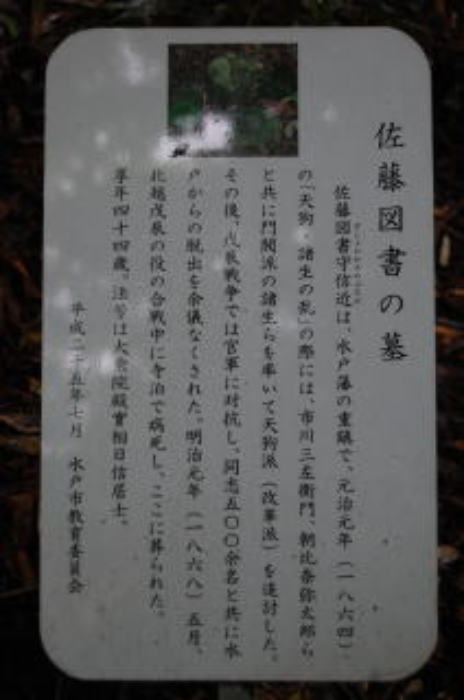 佐藤図書の墓
佐藤図書守信近は、水戸藩の重鎮で、元治元年（一八六四）
の「天狗・諸生の乱」の際には、市川三左衛門、朝比奈弥太郎ら
と共に門閥派の諸生らを率いて天狗派（改革派）を追討した。
その後、戊辰戦争では官軍に対抗し、同志五〇〇余名と共に水
戸からの脱出を余儀なくされた。明治元年（一八六八）五月、
北越戊辰の役の合戦中に寺泊で病死し、ここに葬られた。
享年四十四歳。法号は大 院顕實相日信居士。
平成二十五年七月　水戸市教育委員会